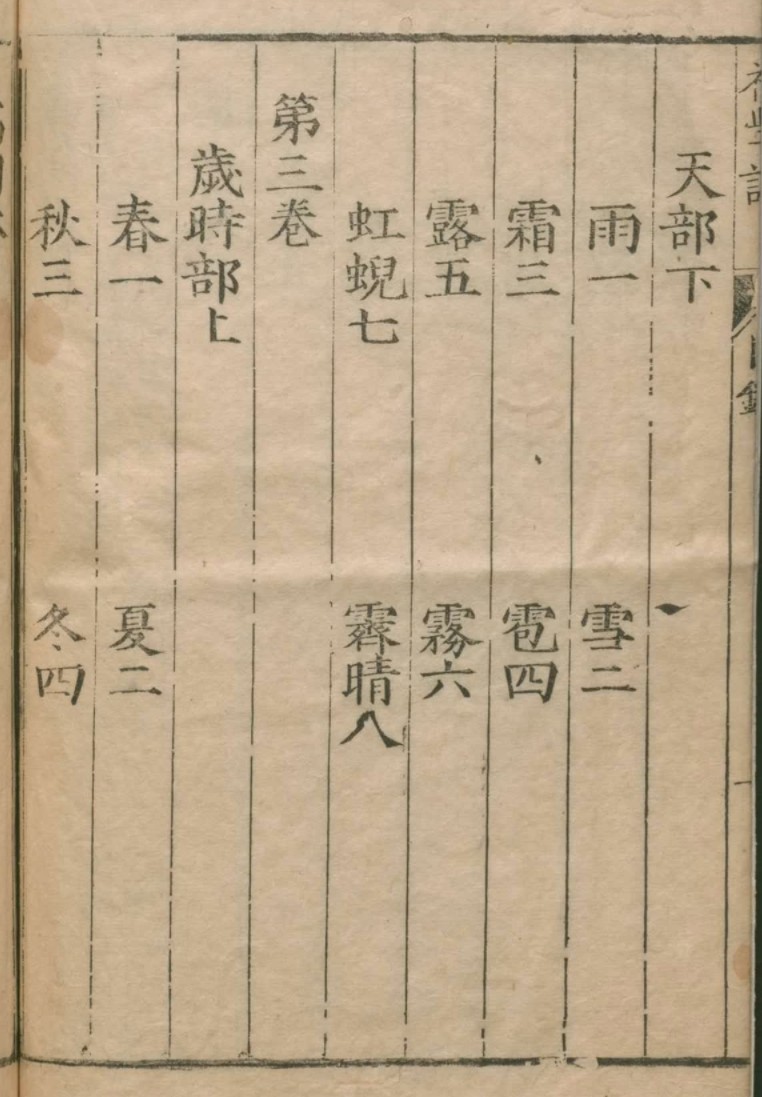 天部下
雨一 雪二
霜三 雹四
露五 霧六
虹蜺七 霽晴八
第三卷
歲時部上
春一 夏二
秋三 冬四